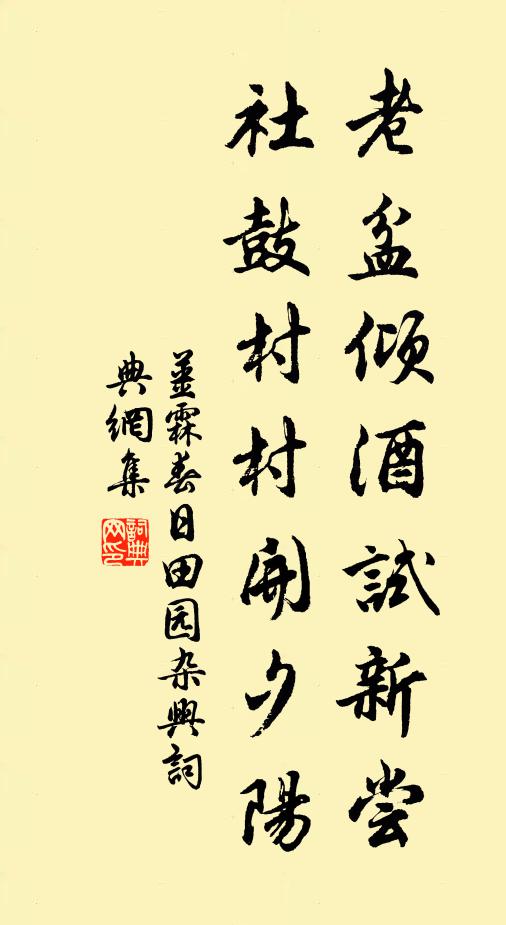 老盆倾酒試新尝
社鼓村村闹夕陽
姜霖春日田园杂興詞
典網集
詞典網印